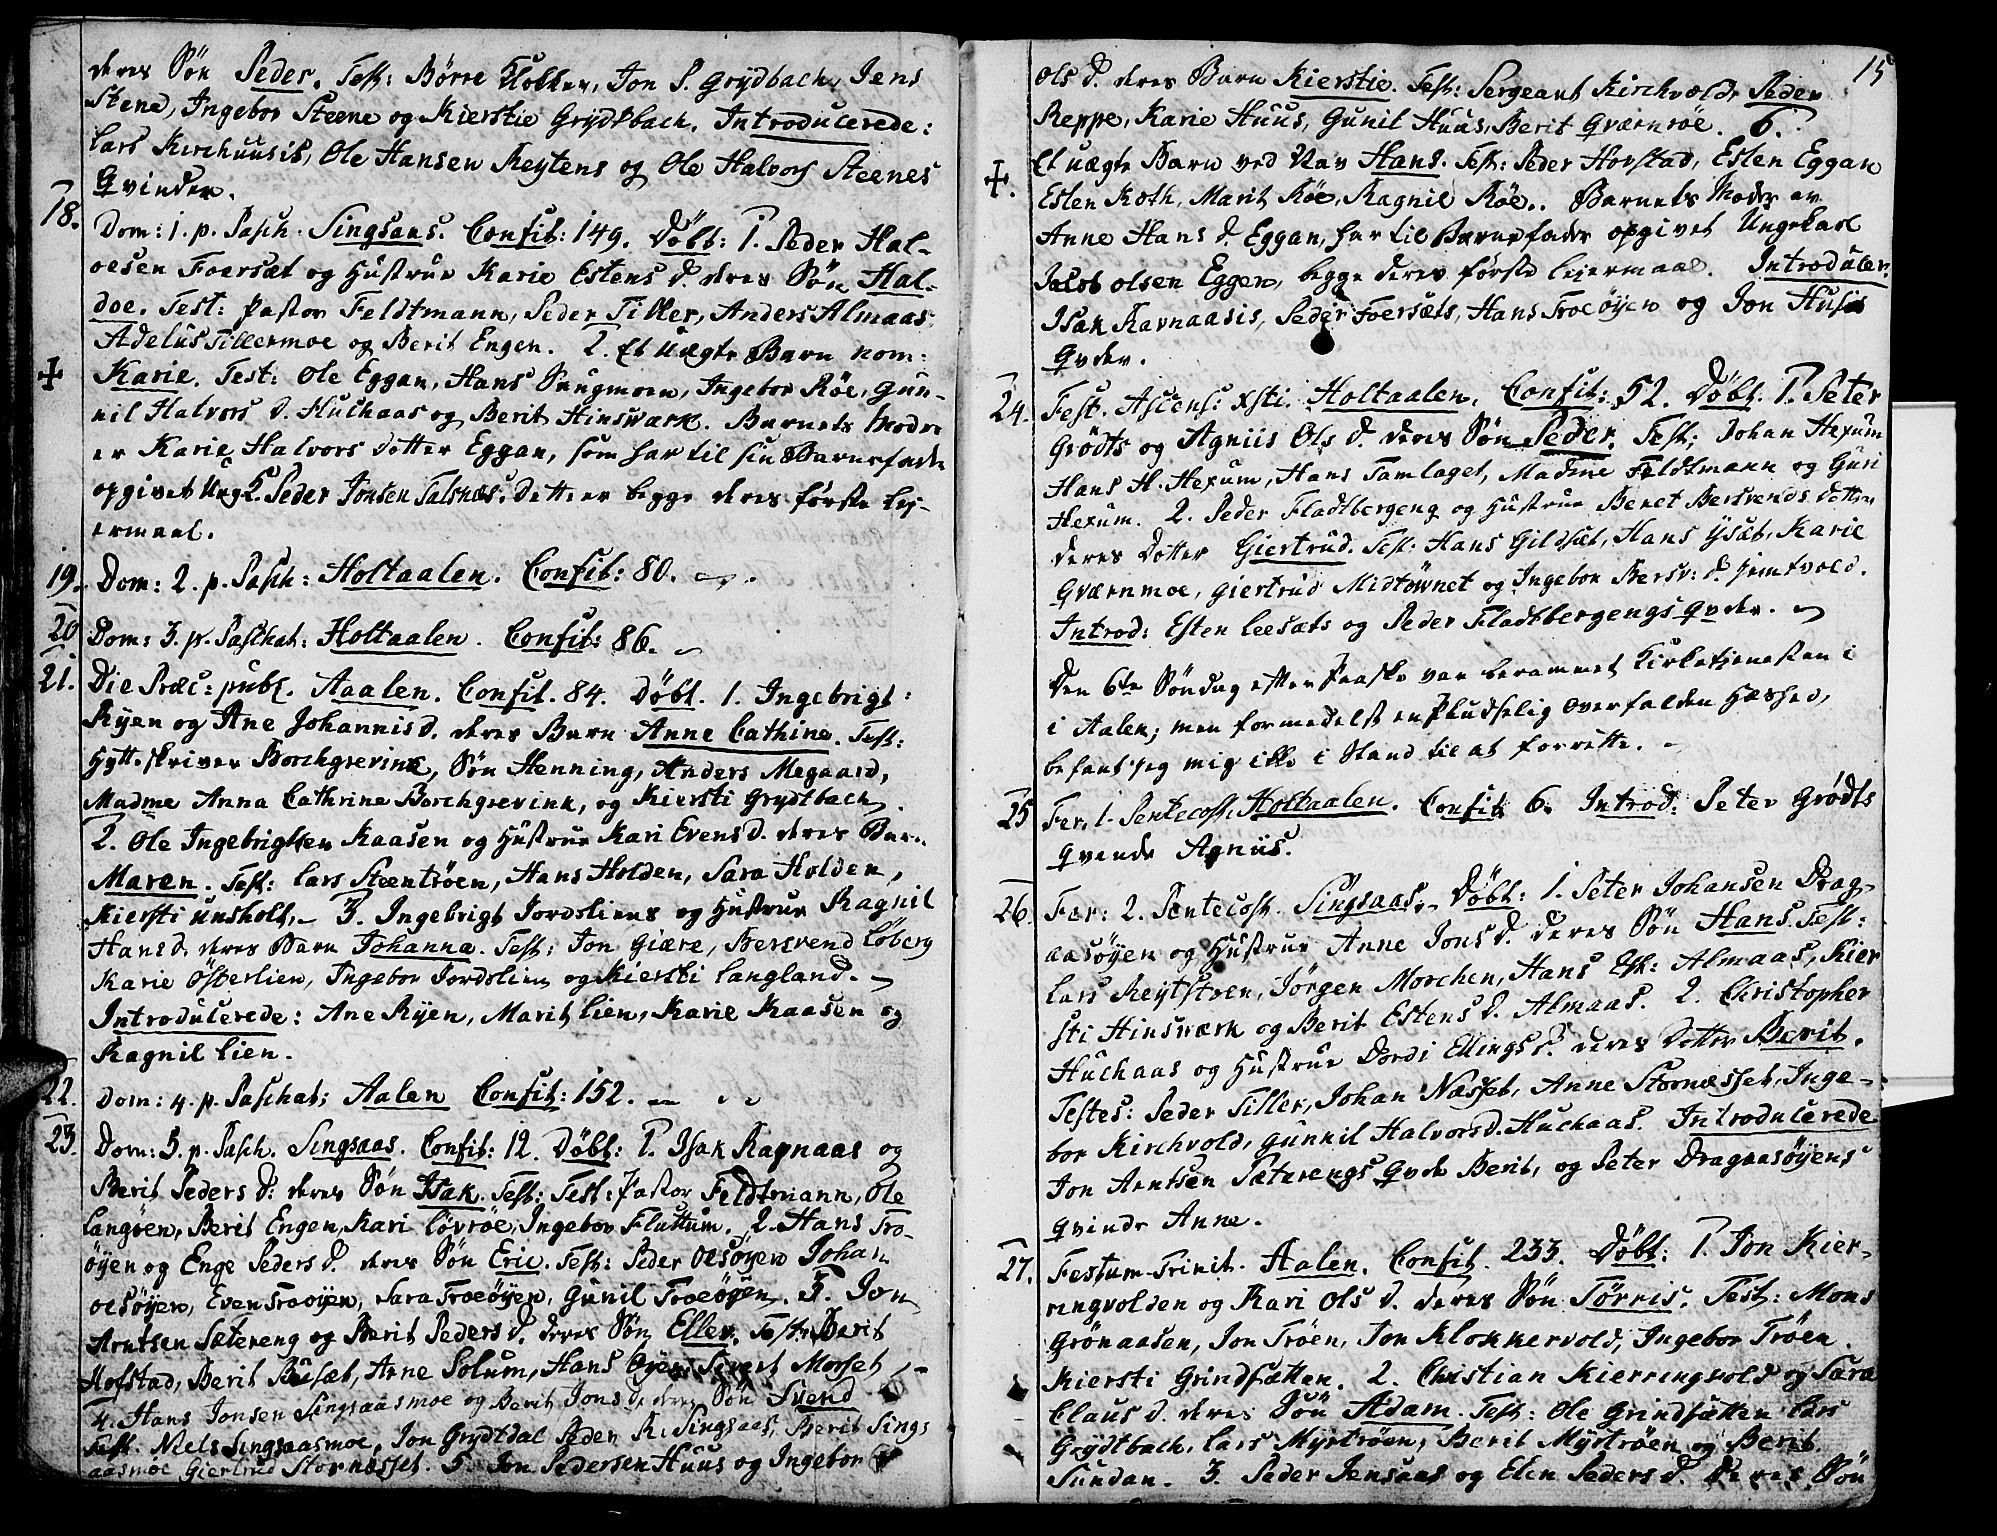 deres Søn Peder. Test: Børre Klokker, Jon P. Grydbach, Jens
Stene, Ingebor Steene og Kierstie Grydsbach. Introducerede:
Lars Kirchuusis, Ole Hansen Reytens og Ole Halvors Steenes
Qvinder.
18. Dom: 1. p. Pasch. Singsaas. Confit: 149. Døbt: 1. Peder Hal-
oesen Foersæt og Hustrue Karie Estens d. deres Søn Hal-
doe. Test: Pastor Feldtmann, Peder Tiller, Anders Almaas,
Adelus Tillermoe og Berit Engen. 2. Et uægte Barn nom:
Karie. Test: Ole Eggan, Hans Haugmoen, Ingebor Røe, Gun-
nil Halvors d. Huchaas og Berit Hinswark. Barnets Moder
er Karie Halvors dotter Eggan, som har til sin Barnefader
opgivet Ung K. Peder Jonsen Talsnæs. Dette er begge deres første Lej-
ermaal.
19. Dom: 2. p. Pasch: Holtaalen. Confit: 80.
20 Dom: 3. p. Paschat: Holtaalen. Confit: 86.
21. Die Præc: publ. Aaalen. Confit. 84. Døbt. 1. Ingebrigt
Ryen og Ane Johannis d. deres Barn Anne Cathine. Test:
Hytteskriver Borchgrevink, Søn Henning, Anders Megaard,
Madme Anna Cathrine Borchgrevink, og Kiersti Grydtbach.
2. Ole Ingebrigtsen Kaasen og Hustrue Kari Evens d. deres Barn
Maren. Test: Lars Steentrøen, Hans Holden, Sara Holden,
Kiersti Unsholt. 3. Ingebrigt Jordsliens og Hustrue Ragnil
Hans d. deres Barn Johanna. Test: Jon Giære, Bersvend Løberg
Karie Østerlien, Ingebor Jordslien og Kiersti Langland.
Introducerede: Ane Ryen, Marit Lien, Karie Kaasen og
Ragnil Lien.
22. Dom: 4. p. Paschat; Aalen Confit: 152.
23. Dom: 5. p. Pasch. Singsaas. Confit: 12. Døbt: 1. Isak Ravnaas og
Berit Peders d: deres Søn Isak. Test: Test: Pastor Feldtmann, Ole
Langøen, Berit Engen, Kari Løvrøe, Ingebor Fluttum. 2. Hans Tro-
øyen og Enge Peders d. deres Søn Eric. Test: Peder Olsøyen Johan
Olsøyen, Even Troeøyen, Sara Troeøyen, Gunil Troeøyen. 3. Jon
Arntsen Sætereng og Berit Peders d. deres Søn Eller. Test: Berit
Hofstad, Berit Busæt, Arne Solum, Hans Øyen, Sivert Morset
4. Hans Jonsen Singsaasmoe og Berit Jons d. deres Søn Svend
Test. Niels Singsaasmoe, Jon Grydtdal Peder R. Singsaas, Berit Sings
aasmoe Giertrud Stornæsset. 5. Jon Pedersen Huus og Ingebor
15
Ols d. deres Barn Kierstie. Test: Sergeant Kirchvold, Peder
Reppe, Karie Huus, Gunil Huus, Berit Qværnrøe. 6.
Et uægte Barn ved Nav Hans. Test: Peder Hovstad, Esten Eggan
Esten Roth, Marit Røe, Ragnil Røe.. Barnets Moder er
Anne Hans d. Eggan, har til Barnefader opgivet Ungekarl
Jacob Olsen Eggen, begge deres første Leiermaal. Introducer.
Isak Ravnaasis, Peder Foersæts, Hans Troeøyen og Jon Husis
Qvder.
24. Fest. Ascens: Xsti. Holtaalen. Confit: 52. Døbt. 1. Peter
Grødts og Agniis Ols d. deres Søn Peder. Test; Johan Hexum
Hans H. Hexum, Hans Tamlaget, Madme Feldtmann og Guri
Hexum. 2. Peder Fladtbergeng og Hustrue Beret Bersvends dotter
deres Dotter Giertrud. Test: Hans Gildset, Hans Ysæt, Karie
Qværnmoe, Giertrud Midtøwnet og Ingebor Bersv: d. Hemtvold.
Introd: Esten Leesæts og Peder Fladtbergengs Qvder.
Den 6te Søndag efter Paaske var berammet Kirketienesten i
i Aalen; men formedelst en pludselig overfalden Hæshed,
befant jeg mig ikke i Stand til at forrette.
25 Fer. 1. Pentecost. Holtaalen. Confit 6. Introd: Peter Grødts
Qvende Agniis.
26. Fær: 2. Pentecost. Singsaas. Døbt: 1. Peter Johansen Drag-
aasøyen og Hustrue Anne Jons d. deres Søn Hans. Test:
Lars Reytstoen, Jørgen Morchen, Hans Est: Almaas, Kier
sti Hinsværk og Berit Estens d. Almaas. 2. Christopher
Huchaas og Hustrue Dordi Ellings d. deres Dotter Berit.
Testes: Peder Tiller, Johan Næsset, Anne Stornæsset, Inge-
bor Kirchvold, Gunnil Halvorsd. Huchaas. Introducerede
Jon Arntsen Sæterengs Qvde Berit, og Peter Dragaasøyens
Qvinde Anne.
27. Festum Trinit. Aalen. Confit. 233. Døbt: 1. Jon Kier-
ringvolden og Kari Ols d. deres Søn Tørris. Test: Mons
Grønaasen, Jon Trøen, Jon Klokkervold, Ingebor Trøen
Kiersti Grindsætten. 2. Christian Kierringvold og Sara
Claus d. deres Søn Adam. Test: Ole Grindsætten Lars
Grydtbach, Lars Myrtrøen, Berit Myrtrøen og Berit
Sundan. 3. Peder Jensaas og Elen Peders d. deres Søn